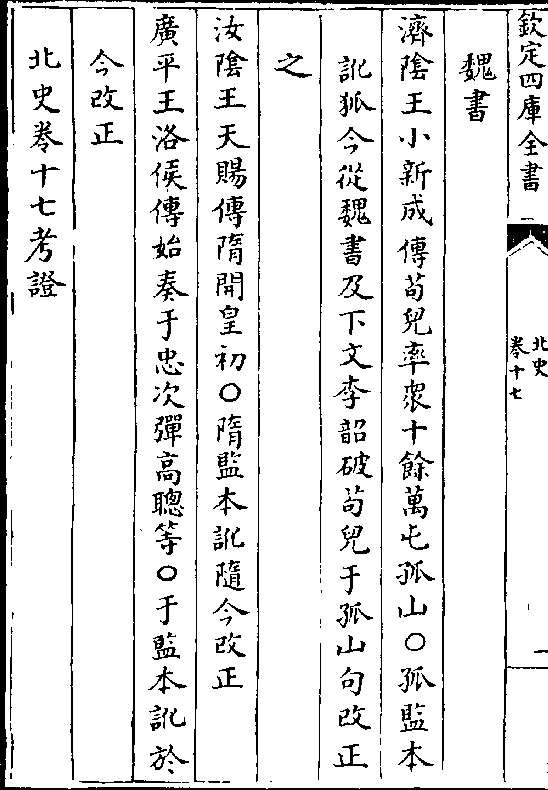 欽定四庫全書
北史
卷十七
一
魏書
濟陰王小新成傳茍兒率衆十餘萬屯孤山○孤監本
訛狐今從魏書及下文李韶破茍兒于孤山句改正
之
汝陰王天賜傳隋開皇初○隋監本訛隨今改正
廣平王洛侯傳始奏于忠次彈高聰等○于監本訛於
今改正
北史卷十七考證